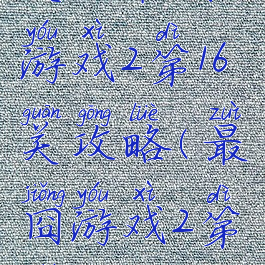 yóu xì dì
游戏2第16
guān gōng lüè zuì
关攻略(最
jiǒng yóu xì dì
囧游戏2第